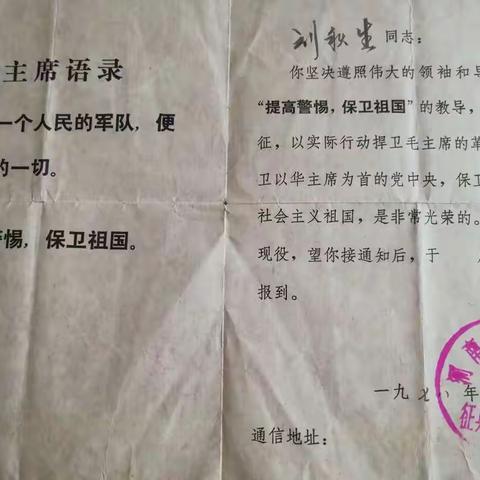 主席语录
一个人民的军队，便
的一切。
警惕，保卫祖国。
刘秋生同志：
你坚决遵照伟大的领袖和导
“提高警惕，保卫祖国”的教导，
征，以实际行动捍卫毛主席的革
卫以华主席为首的党中央，保卫
社会主义祖国，是非常光荣的。
现役，望你接通知后，于
报到。
一九七八年
征兵
通信地址：